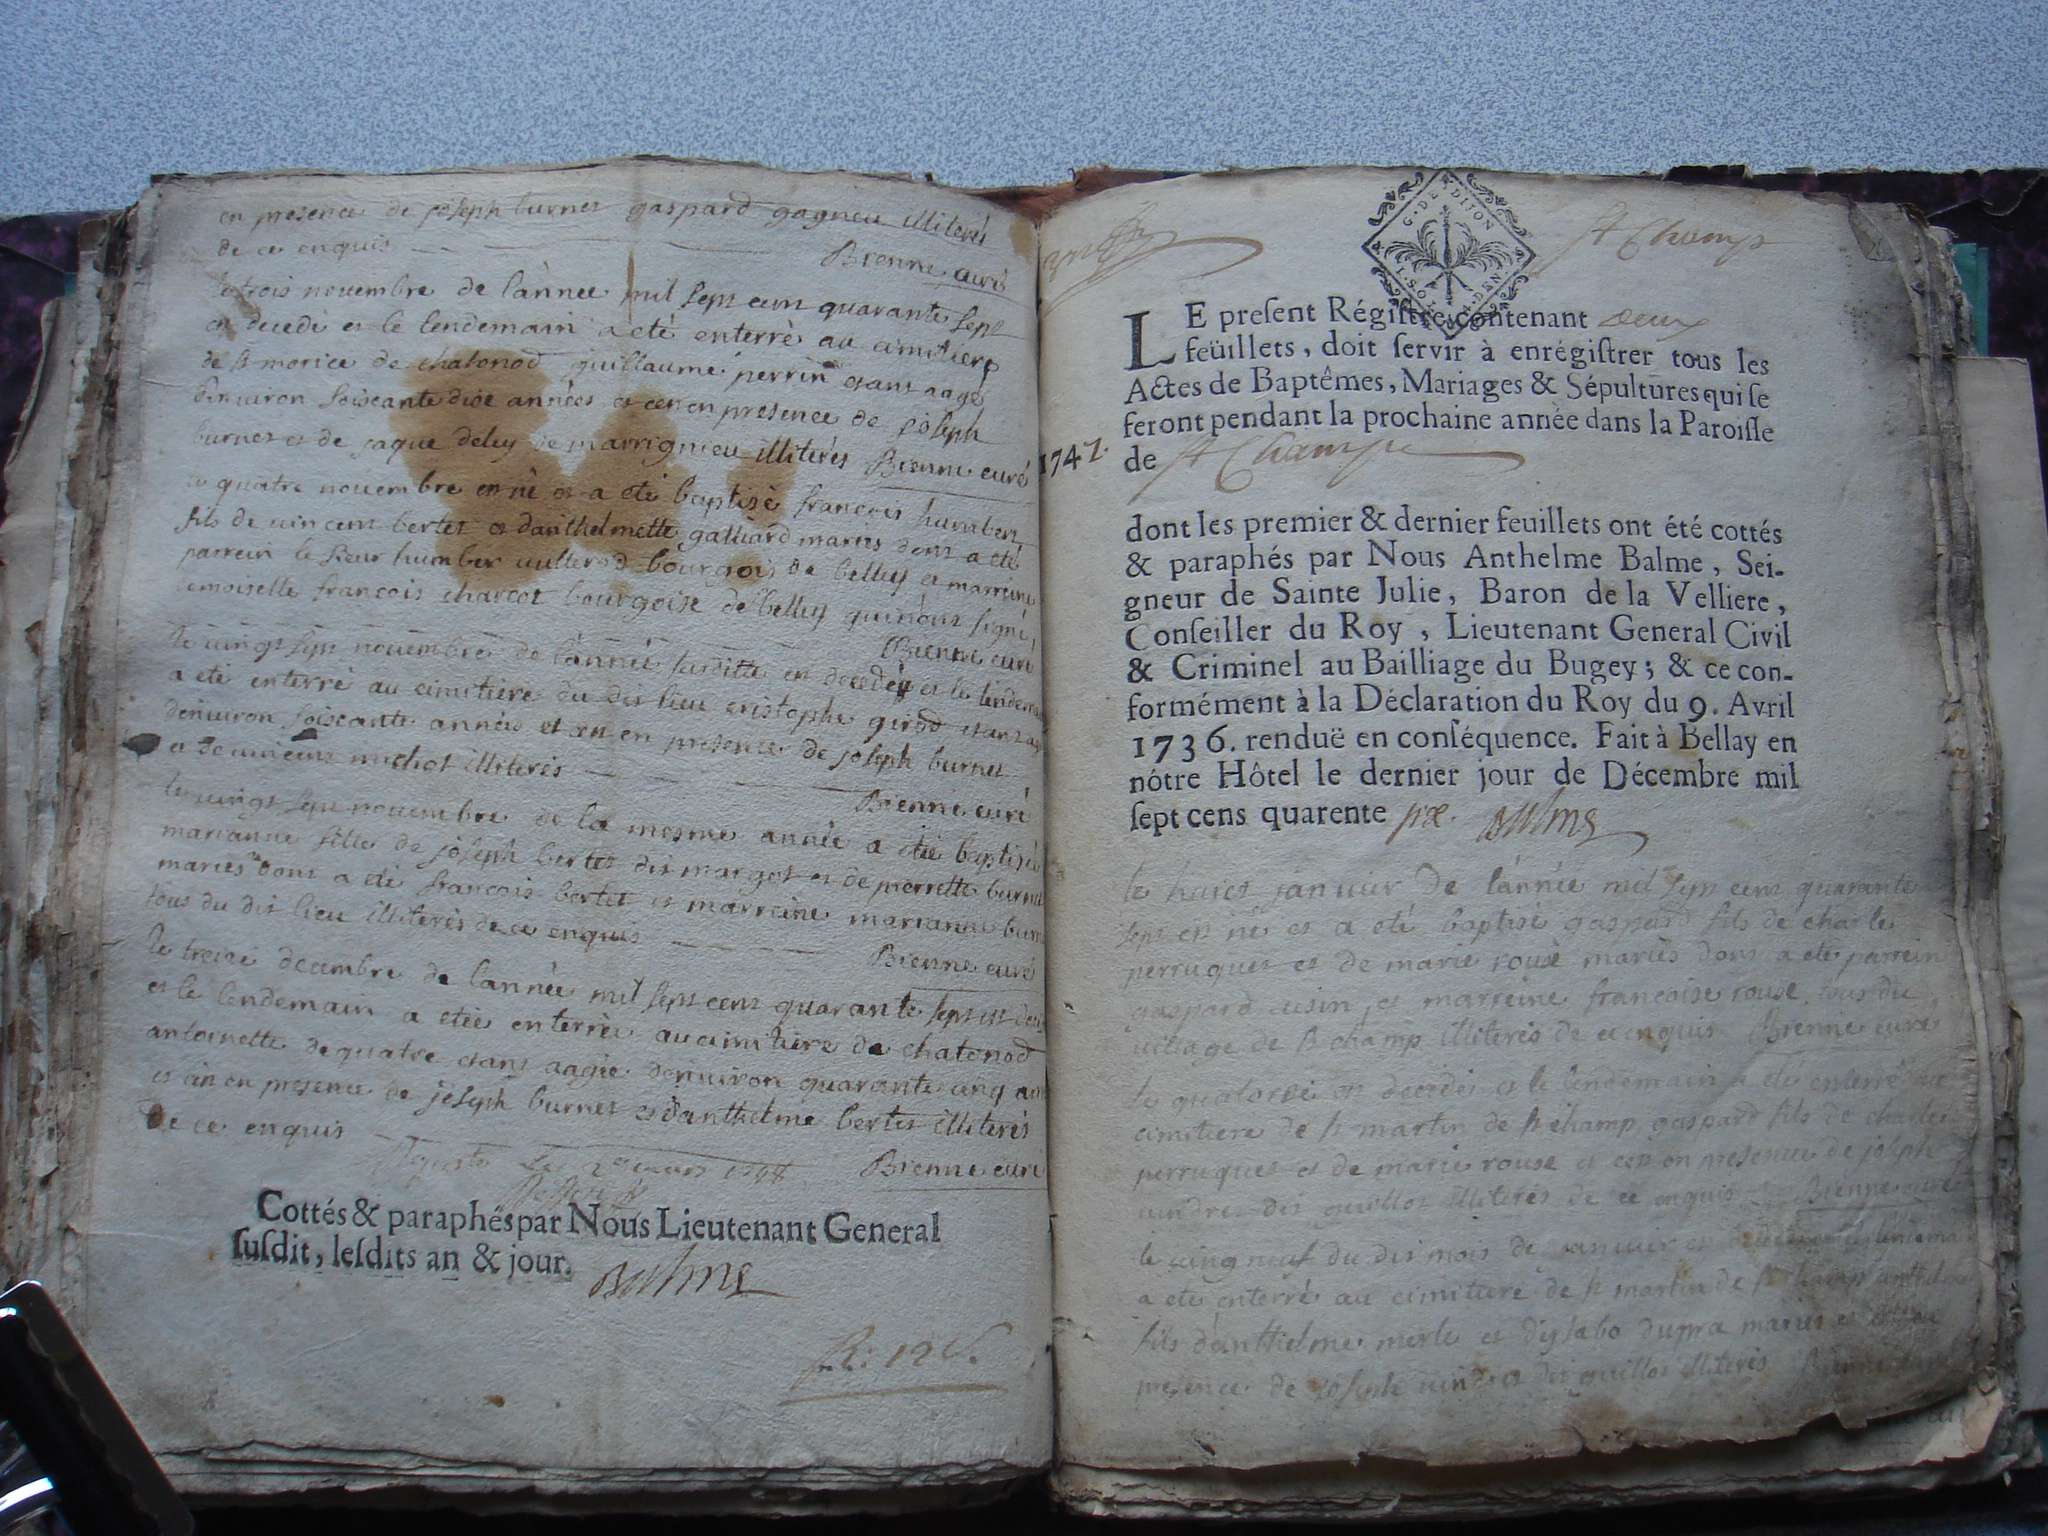 en presence de joseph burnet gaspard gagneu illiterés
de ce enquis Brenne curé
le trois novembre de l'année mil sept cent quarante sept
en decedé et le lendemain a eté enterré au cimitiere
de st morice de chatonod guillaume perrin etant aagé
denviron soiscante dise années et ce en presence de joseph
burnet et de jaque deley de marrignieu illiterés Brenne curé
le quatre novembre en né et a eté baptisé francois humbert
fils de vincent bertet et danthelmette galliard mariés dont a eté
parrein le sieur humber vulterod bourgois de belley et marreine
demoiselle francois charcot bourgoise de belley qui nont signé
Brenne curé
le vingt sept novembre de l'année susditte en decedé et le lendemain
a eté enterré au cimitiere du dit lieu cristophe girod etant aagé
denviron soiscante années et ce en presence de joseph burnet
et de vincent michot illiterés
Brenne curé
le vingt sept novembre de la mesme année a eté baptisé
marianne fille de joseph bertet dit margot et de pierrette burnet
mariés dont a eté francois bertet et marreine marianne burn
tous du dit lieu illiterés de ce enquis
Brenne curé
le treize decembre de l'année mil sept cent quarante sept est
et le lendemain a etée enterrée au cimitiere de chatonod
antoinette de quatre etant aagée denviron quarante cinq an
et ce en presence de joseph burnet et danthelme bertet illiterés
de ce enquis
Brenne curé
Cottés & paraphés par Nous Lieutenant General
susdit, lesdits an & jour. Balme
G. DE DIJON
St Champ
LE present Régistre contenant deux
feüillets, doit servir à enrégistrer tous les
Actes de Baptêmes, Mariages & Sépultures qui se
feront pendant la prochaine année dans la Paroisse
1747. de St Champ
dont les premier & dernier feuillets ont été cottés
& paraphés par Nous Anthelme Balme, Sei-
gneur de Sainte Julie, Baron de la Velliere,
Conseiller du Roy, Lieutenant General Civil
& Criminel au Bailliage du Bugey; & ce con-
formément à la Déclaration du Roy du 9. Avril
1736. renduë en conséquence. Fait à Bellay en
nôtre Hôtel le dernier jour de Décembre mil
sept cens quarente six. Balme
le janvier de l'année mil sept cent quarante
sept en né et a eté baptisé gaspard fils de charle
perruquet et de marie rouse mariés dont a eté parrein
gaspard cusin et marreine francoise rouse tous du
village de st champ illiterés de ce enquis Brenne curé
le quatorze en decedé et le lendemain a eté enterré au
cimitiere de st martin de st champ gaspard fils de charle
perruquet et de marie rouse et ce en presence de joseph
vindret dit guillot illiterés de ce enquis Brenne curé
le du dit mois de janvier en
a eté enterré au cimitiere de st martin de st champ
fils danthelme merle et mariés et
presence de joseph vindret dit guillot illiterés Brenne curé